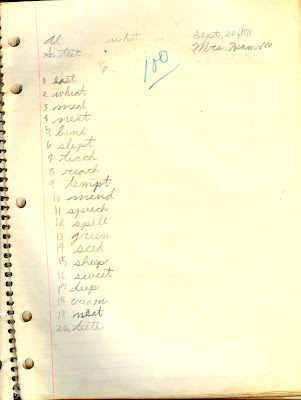 Al what Sept. 20, 1971
S. test Mrs. Hamm
100
1 east
2 wheat
3 meal
4 nest
5, bend
6 slept
7 teach
8 reach
9 tempt
10 mind
11 speech
12 spell
13 green
14 seed
15 sheep
16 sweet
17 deep
18 cream
19 neat
20, teeth